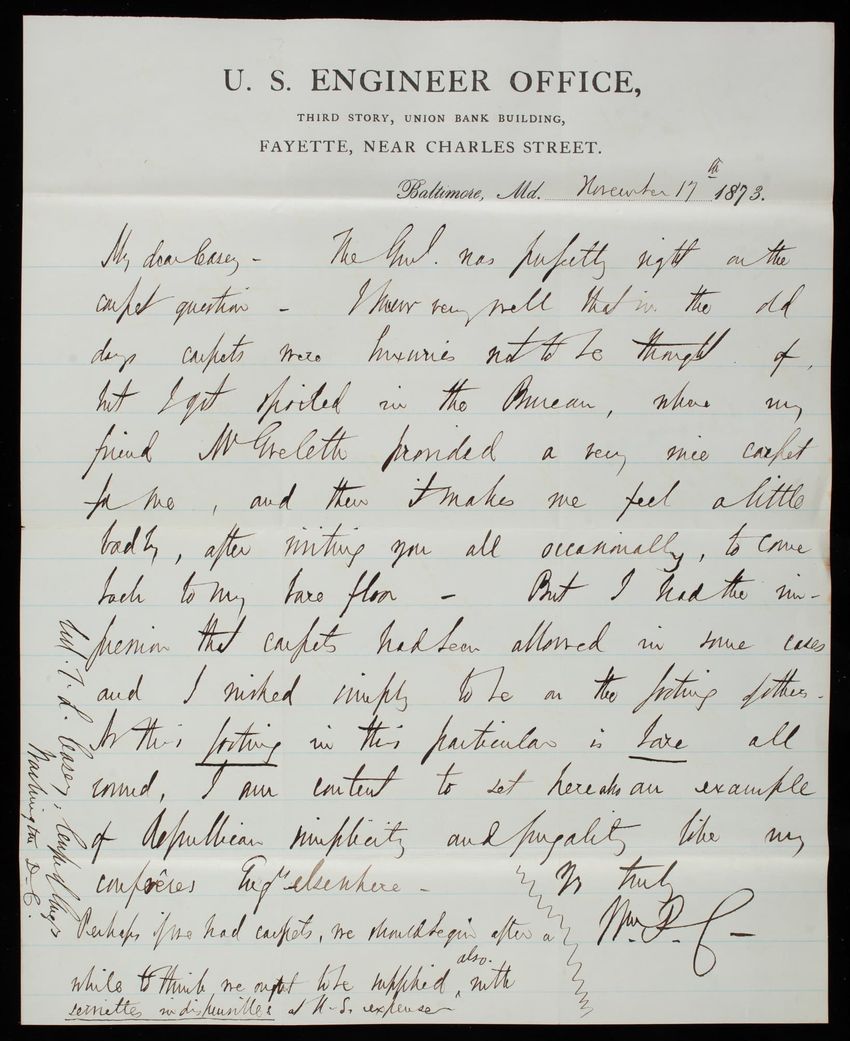 U. S. ENGINEER OFFICE,
THIRD STORY, UNION BANK BUILDING,
FAYETTE, NEAR CHARLES STREET.
Baltimore, Md. November 17th 1873.
My dear Casey - The Genl. was perfectly right on the
carpet question - I knew very well that in the old
days carpets were luxuries not to be thought of,
but I got spoiled in the Bureau, where my
friend Mr Eveleth provided a very nice carpet
for me, and then it makes me feel a little
badly, after visiting you all occasionally, to come
back to my bare floor - But I had the im-
pression that carpets had been allowed in some cases
and I wished simply to be on the footing of others.
As this footing in this particular is bare all
round, I am content to set here also an example
of Republican simplicity and frugality like my
confrères Engrs elsewhere -
Yrs truly
Wm. P. C-
Perhaps if we had carpets, we should begin after a
while to think we ought to be supplied also. with
serviettes indispensibles at U. S. expense
Col. T. L. Casey, Corps of Engrs
Washington D.C.